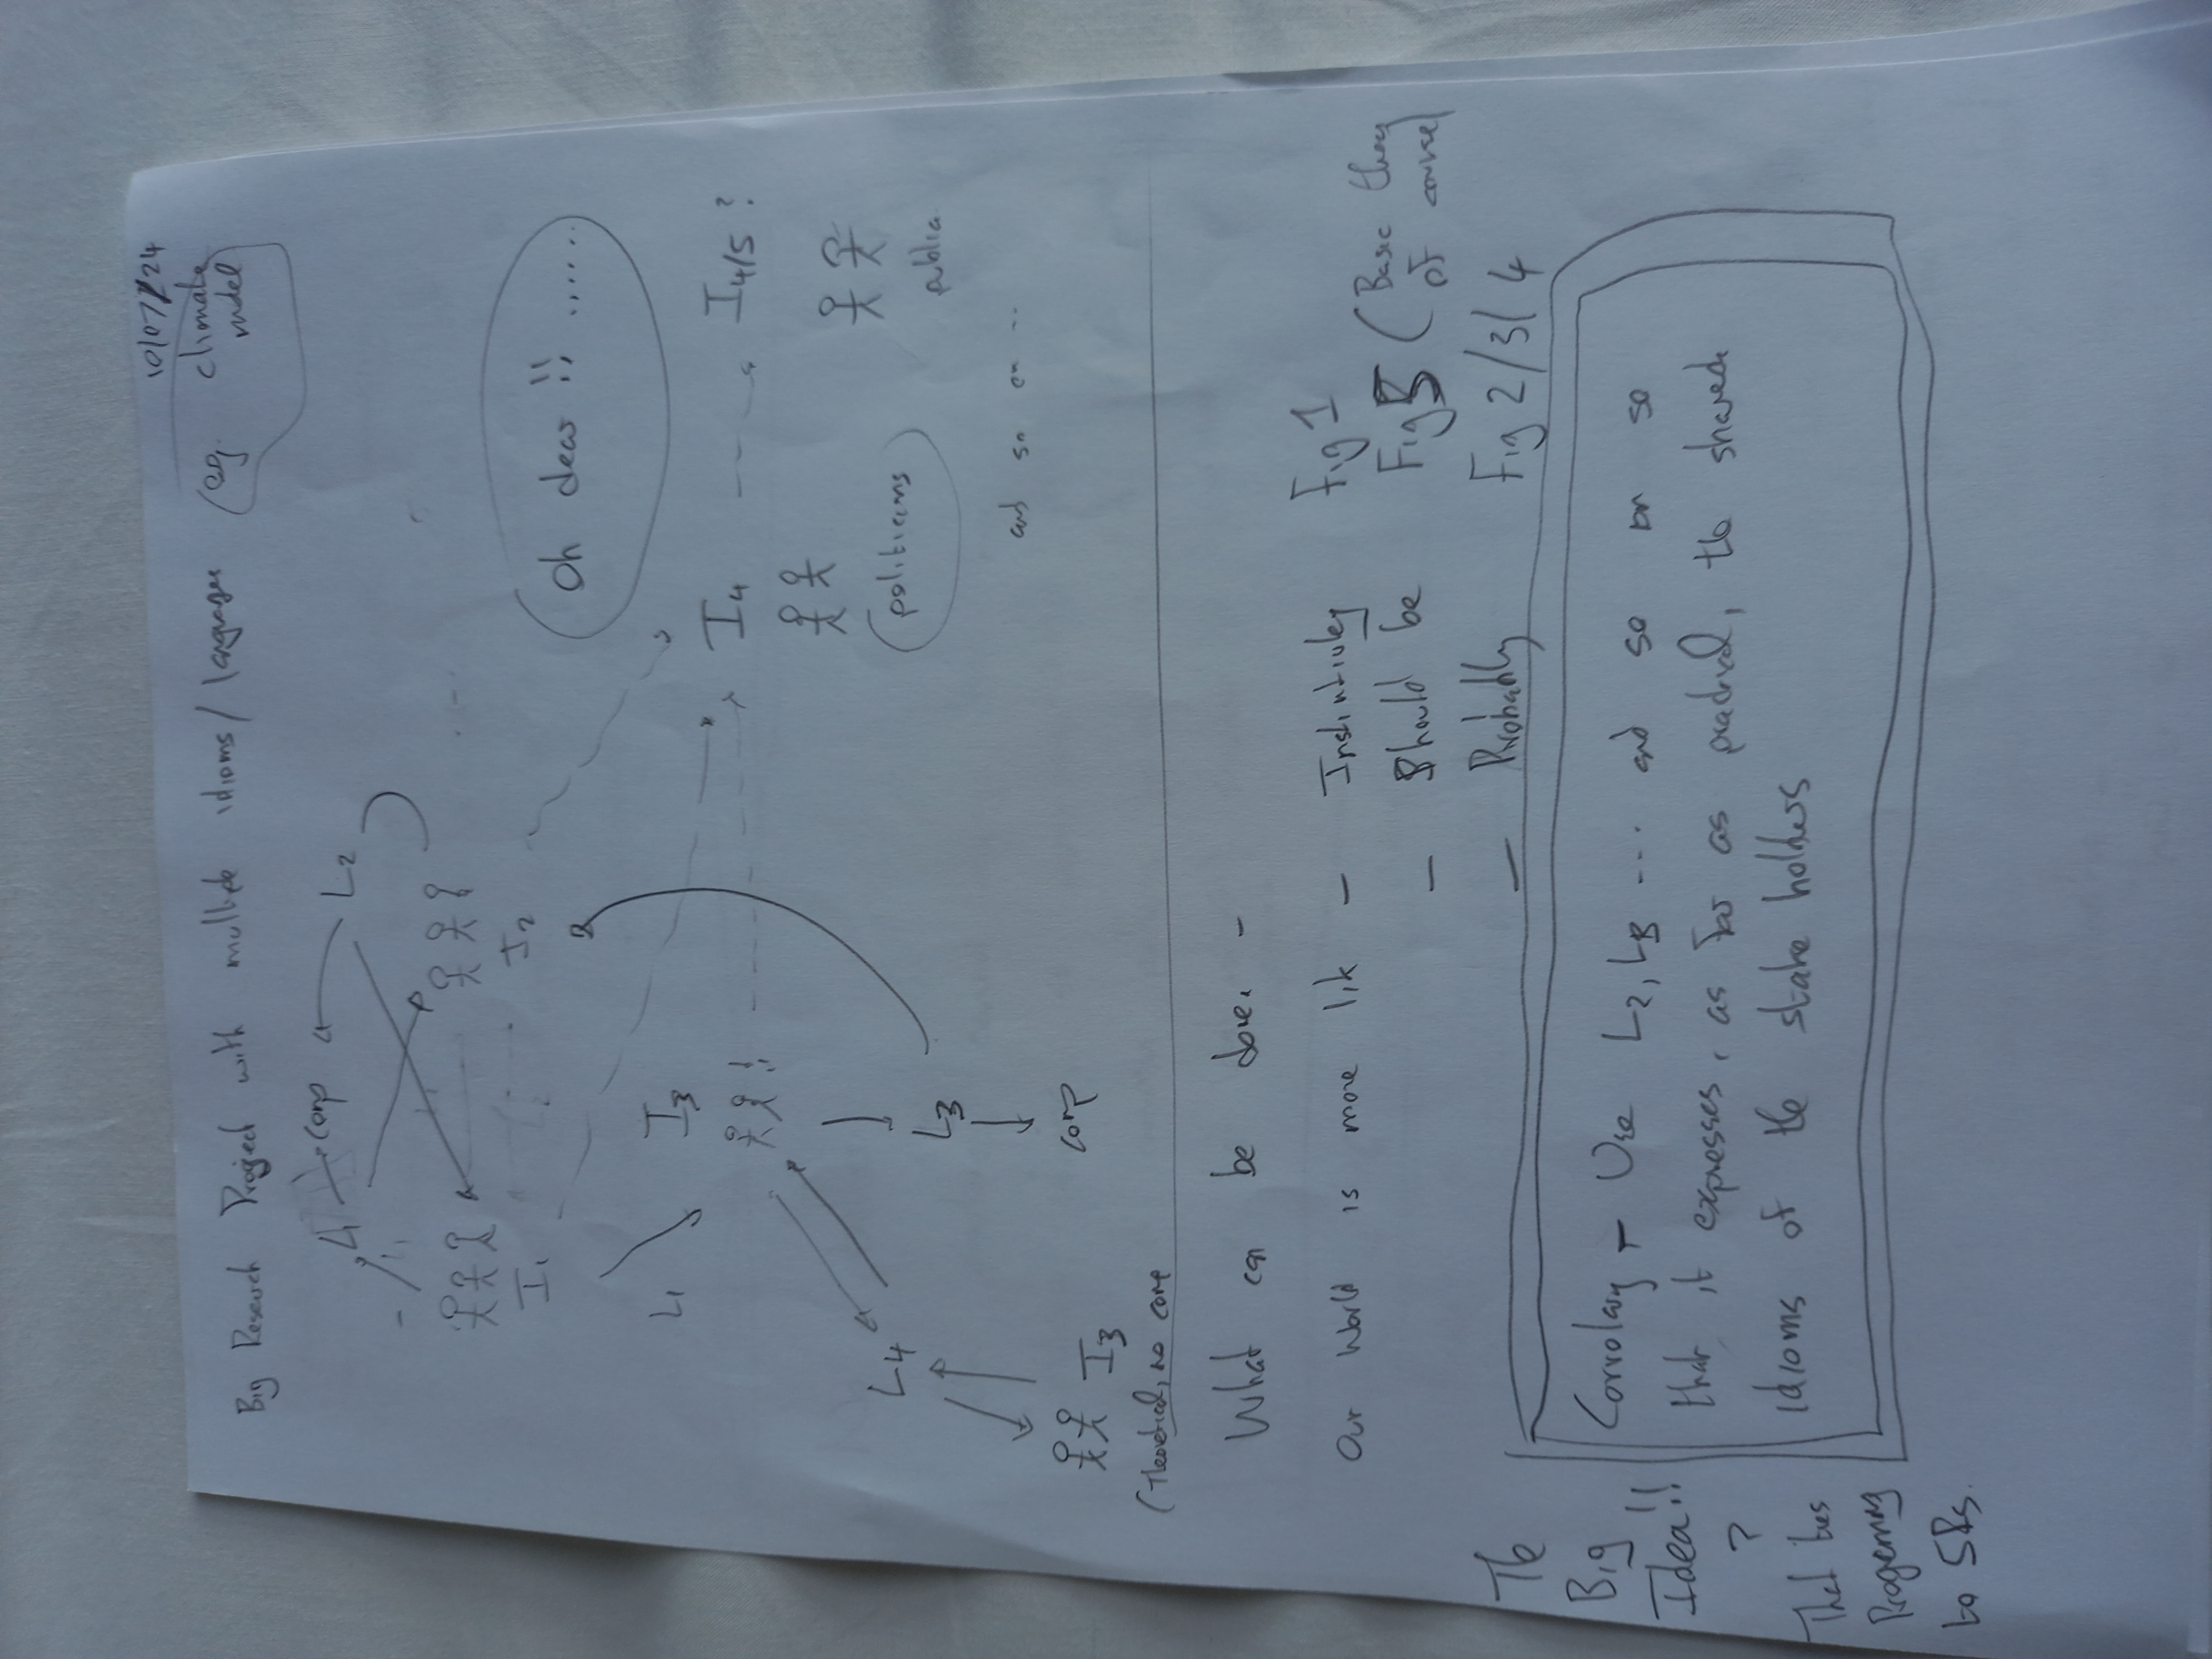 10/07/24
Big Research Project with multiple idioms/languages (eg. climate
model
L1 comp L2
I1 I2
Oh dear !! ......
L1 I3
I4 I4/5 ?
L4
politicians
L3 public
and so on ..
comp
I3
(Theoretical, no comp
What can be done. -
Our World is more lik - Instintivley Fig 1
- Should be Fig 5 (Basic
of course
- Probably Fig 2/3/4
The
Big
Idea!!
?
That ties
to SRs.
Corrolary - Use L2, L3 .... and so on so
that it expresses, as far as practical, the shared
idioms of the stake holders